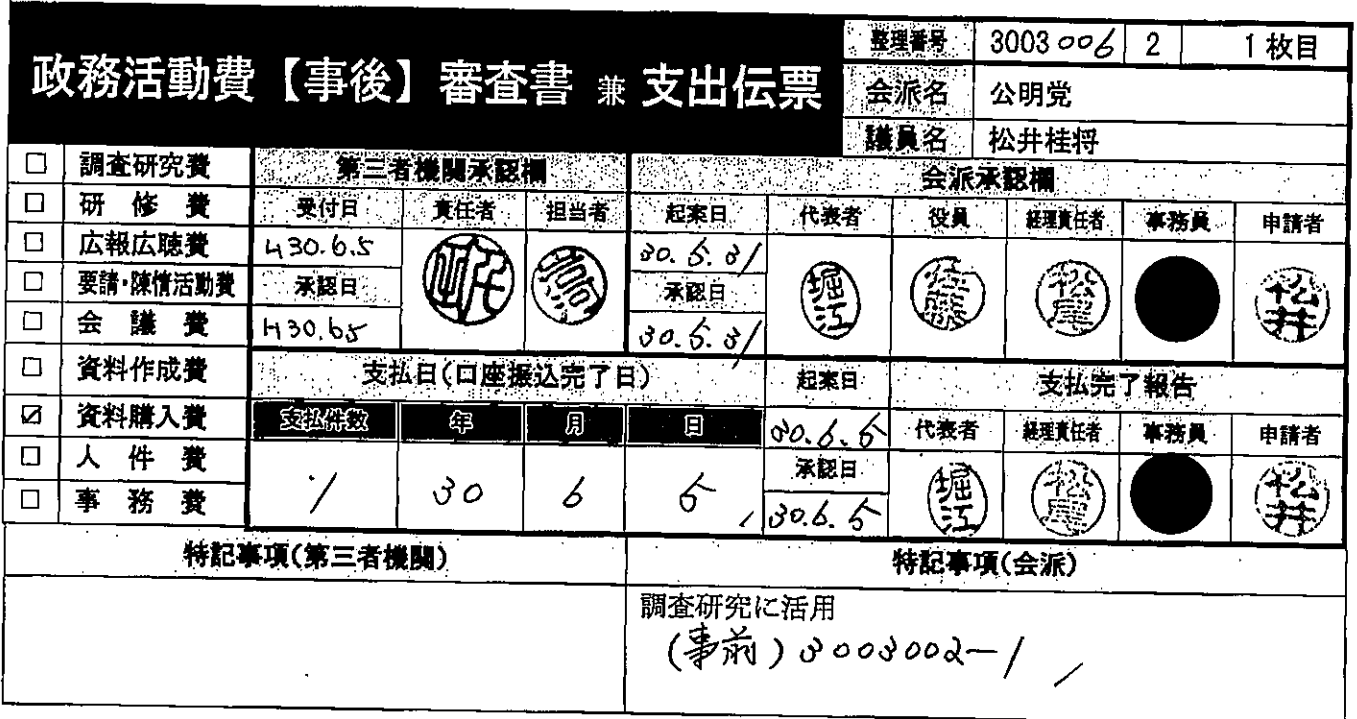 政務活動費【事後】審査書 兼 支出伝票
整理番号 3003006 2 1枚目
会派名 公明党
議員名 松井桂将
□ 調査研究費
□ 研修費
□ 広報広聴費
□ 要請・陳情活動費
□ 会議費
□ 資料作成費
☑ 資料購入費
□ 人件費
□ 事務費
第三者機関承認欄
受付日 責任者 担当者
H30.6.5
承認日
H30.6.5
会派承認欄
起案日 代表者 役員 経理責任者 事務員 申請者
30.5.31 堀江 佐藤 松尾 松井
承認日
30.5.31
支払日(口座振込完了日)
支払件数 年 月 日
1 30 6 5
起案日
30.6.5
承認日
30.6.5
支払完了報告
代表者 経理責任者 事務員 申請者
堀江 松尾 松井
特記事項(第三者機関)
特記事項(会派)
調査研究に活用
(事前)3003002-1